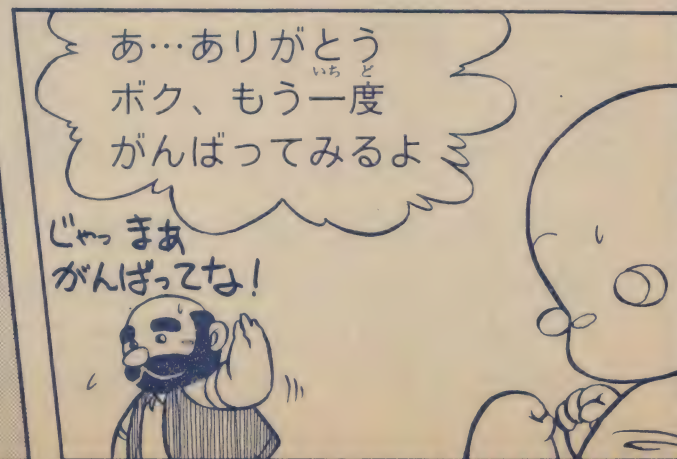 あ…ありがとう
ボク、もう一度
がんばってみるよ
じゃっ まあ
がんばってな!